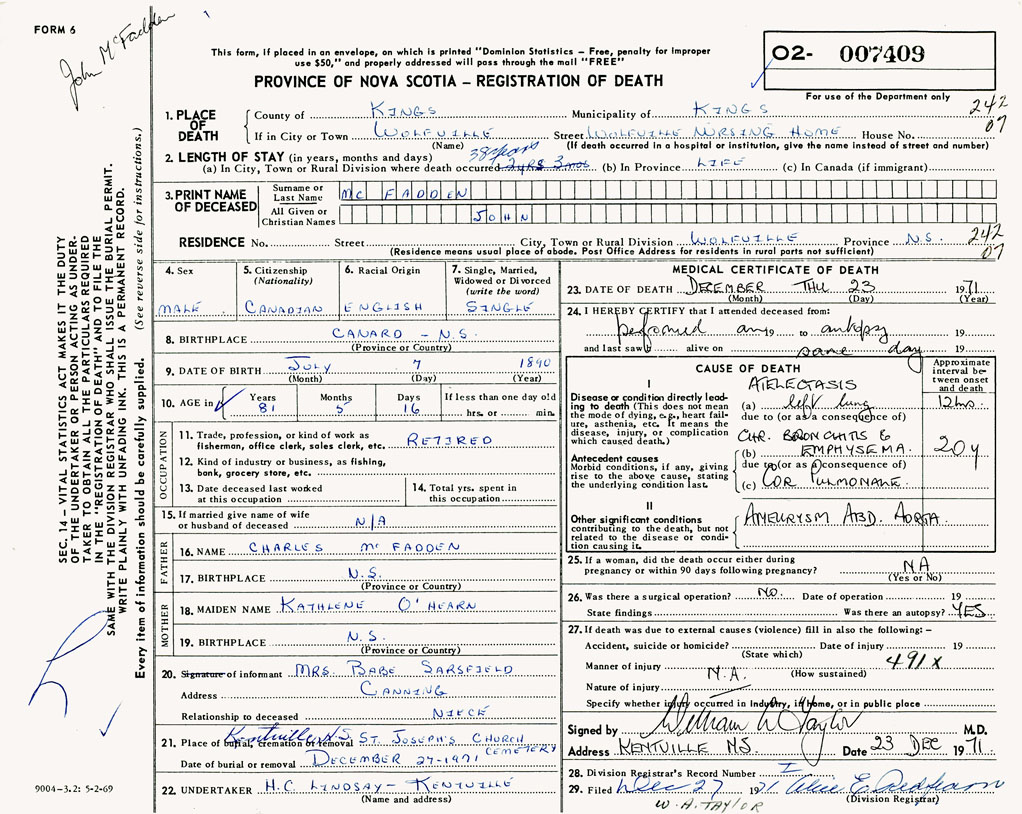 FORM 6
John McFadden
This form, if placed in an envelope, on which is printed "Dominion Statistics – Free, penalty for improper
use $50," and properly addressed will pass through the mail "FREE"
PROVINCE OF NOVA SCOTIA – REGISTRATION OF DEATH
O2- 007409
For use of the Department only
242
07
1. PLACE OF DEATH
County of KINGS Municipality of KINGS
If in City or Town WOLFVILLE Street WOLFVILLE NURSING HOME House No.
(Name) (If death occurred in a hospital or institution, give the name instead of street and number)
2. LENGTH OF STAY (in years, months and days) 38 years
(a) In City, Town or Rural Division where death occurred 2 YRS 3 mos (b) In Province LIFE (c) In Canada (if immigrant)
3. PRINT NAME OF DECEASED
Surname or Last Name MC FADDEN
All Given or Christian Names JOHN
RESIDENCE No. Street City, Town or Rural Division WOLFVILLE Province N.S. 242
(Residence means usual place of abode. Post Office Address for residents in rural parts not sufficient) 07
4. Sex MALE
5. Citizenship (Nationality) CANADIAN
6. Racial Origin ENGLISH
7. Single, Married, Widowed or Divorced (write the word) SINGLE
8. BIRTHPLACE CANARD – N.S.
(Province or Country)
9. DATE OF BIRTH JULY 7 1890
(Month) (Day) (Year)
10. AGE in Years 81 Months 5 Days 16 If less than one day old hrs. or min.
OCCUPATION
11. Trade, profession, or kind of work as fisherman, office clerk, sales clerk, etc. RETIRED
12. Kind of industry or business, as fishing, bank, grocery store, etc.
13. Date deceased last worked at this occupation
14. Total yrs. spent in this occupation
15. If married give name of wife or husband of deceased N/A
FATHER
16. NAME CHARLES MC FADDEN
17. BIRTHPLACE N.S.
(Province or Country)
MOTHER
18. MAIDEN NAME KATHLENE O'HEARN
19. BIRTHPLACE N.S.
(Province or Country)
20. Signature of informant MRS. BABE SARSFIELD
Address CANNING
Relationship to deceased NIECE
21. Place of burial, cremation or removal Kentville N.S. ST. JOSEPH'S CHURCH CEMETERY
Date of burial or removal DECEMBER 27-1971
22. UNDERTAKER H.C. LINDSAY – KENTVILLE
(Name and address)
MEDICAL CERTIFICATE OF DEATH
23. DATE OF DEATH DECEMBER THU 23 1971
(Month) (Day) (Year)
24. I HEREBY CERTIFY that I attended deceased from:
performed an 19 to autopsy 19
and last saw alive on same day 19
CAUSE OF DEATH
Approximate interval between onset and death
I
Disease or condition directly leading to death (This does not mean the mode of dying, e.g., heart failure, asthenia, etc. It means the disease, injury, or complication which caused death.)
ATELECTASIS
(a) left lung 12 hrs.
due to (or as a consequence of)
Antecedent causes
Morbid conditions, if any, giving rise to the above cause, stating the underlying condition last.
CHR. BRONCHITIS &
(b) EMPHYSEMA 20 y
due to (or as a consequence of)
(c) COR PULMONALE.
II
Other significant conditions contributing to the death, but not related to the disease or condition causing it.
ANEURYSM ABD. AORTA.
25. If a woman, did the death occur either during pregnancy or within 90 days following pregnancy? NA
(Yes or No)
26. Was there a surgical operation? NO. Date of operation 19
State findings Was there an autopsy? YES
27. If death was due to external causes (violence) fill in also the following: –
Accident, suicide or homicide? Date of injury 19
(State which) 491X
Manner of injury N.A. (How sustained)
Nature of injury
Specify whether injury occurred in Industry, in Home, or in public place
Signed by William W Taylor M.D.
Address KENTVILLE NS. Date 23 DEC 1971
28. Division Registrar's Record Number I
29. Filed Dec 27 1971
(Division Registrar)
W. A. TAYLOR
SEC. 14 – VITAL STATISTICS ACT MAKES IT THE DUTY
OF THE UNDERTAKER OR PERSON ACTING AS UNDER-
TAKER TO OBTAIN ALL THE PARTICULARS REQUIRED
IN THE "REGISTRATION OF DEATH" AND TO FILE THE
SAME WITH THE DIVISION REGISTRAR WHO SHALL ISSUE THE BURIAL PERMIT.
WRITE PLAINLY WITH UNFADING INK. THIS IS A PERMANENT RECORD.
Every item of information should be carefully supplied. (See reverse side for instructions.)
9004–3.2: 5-2-69